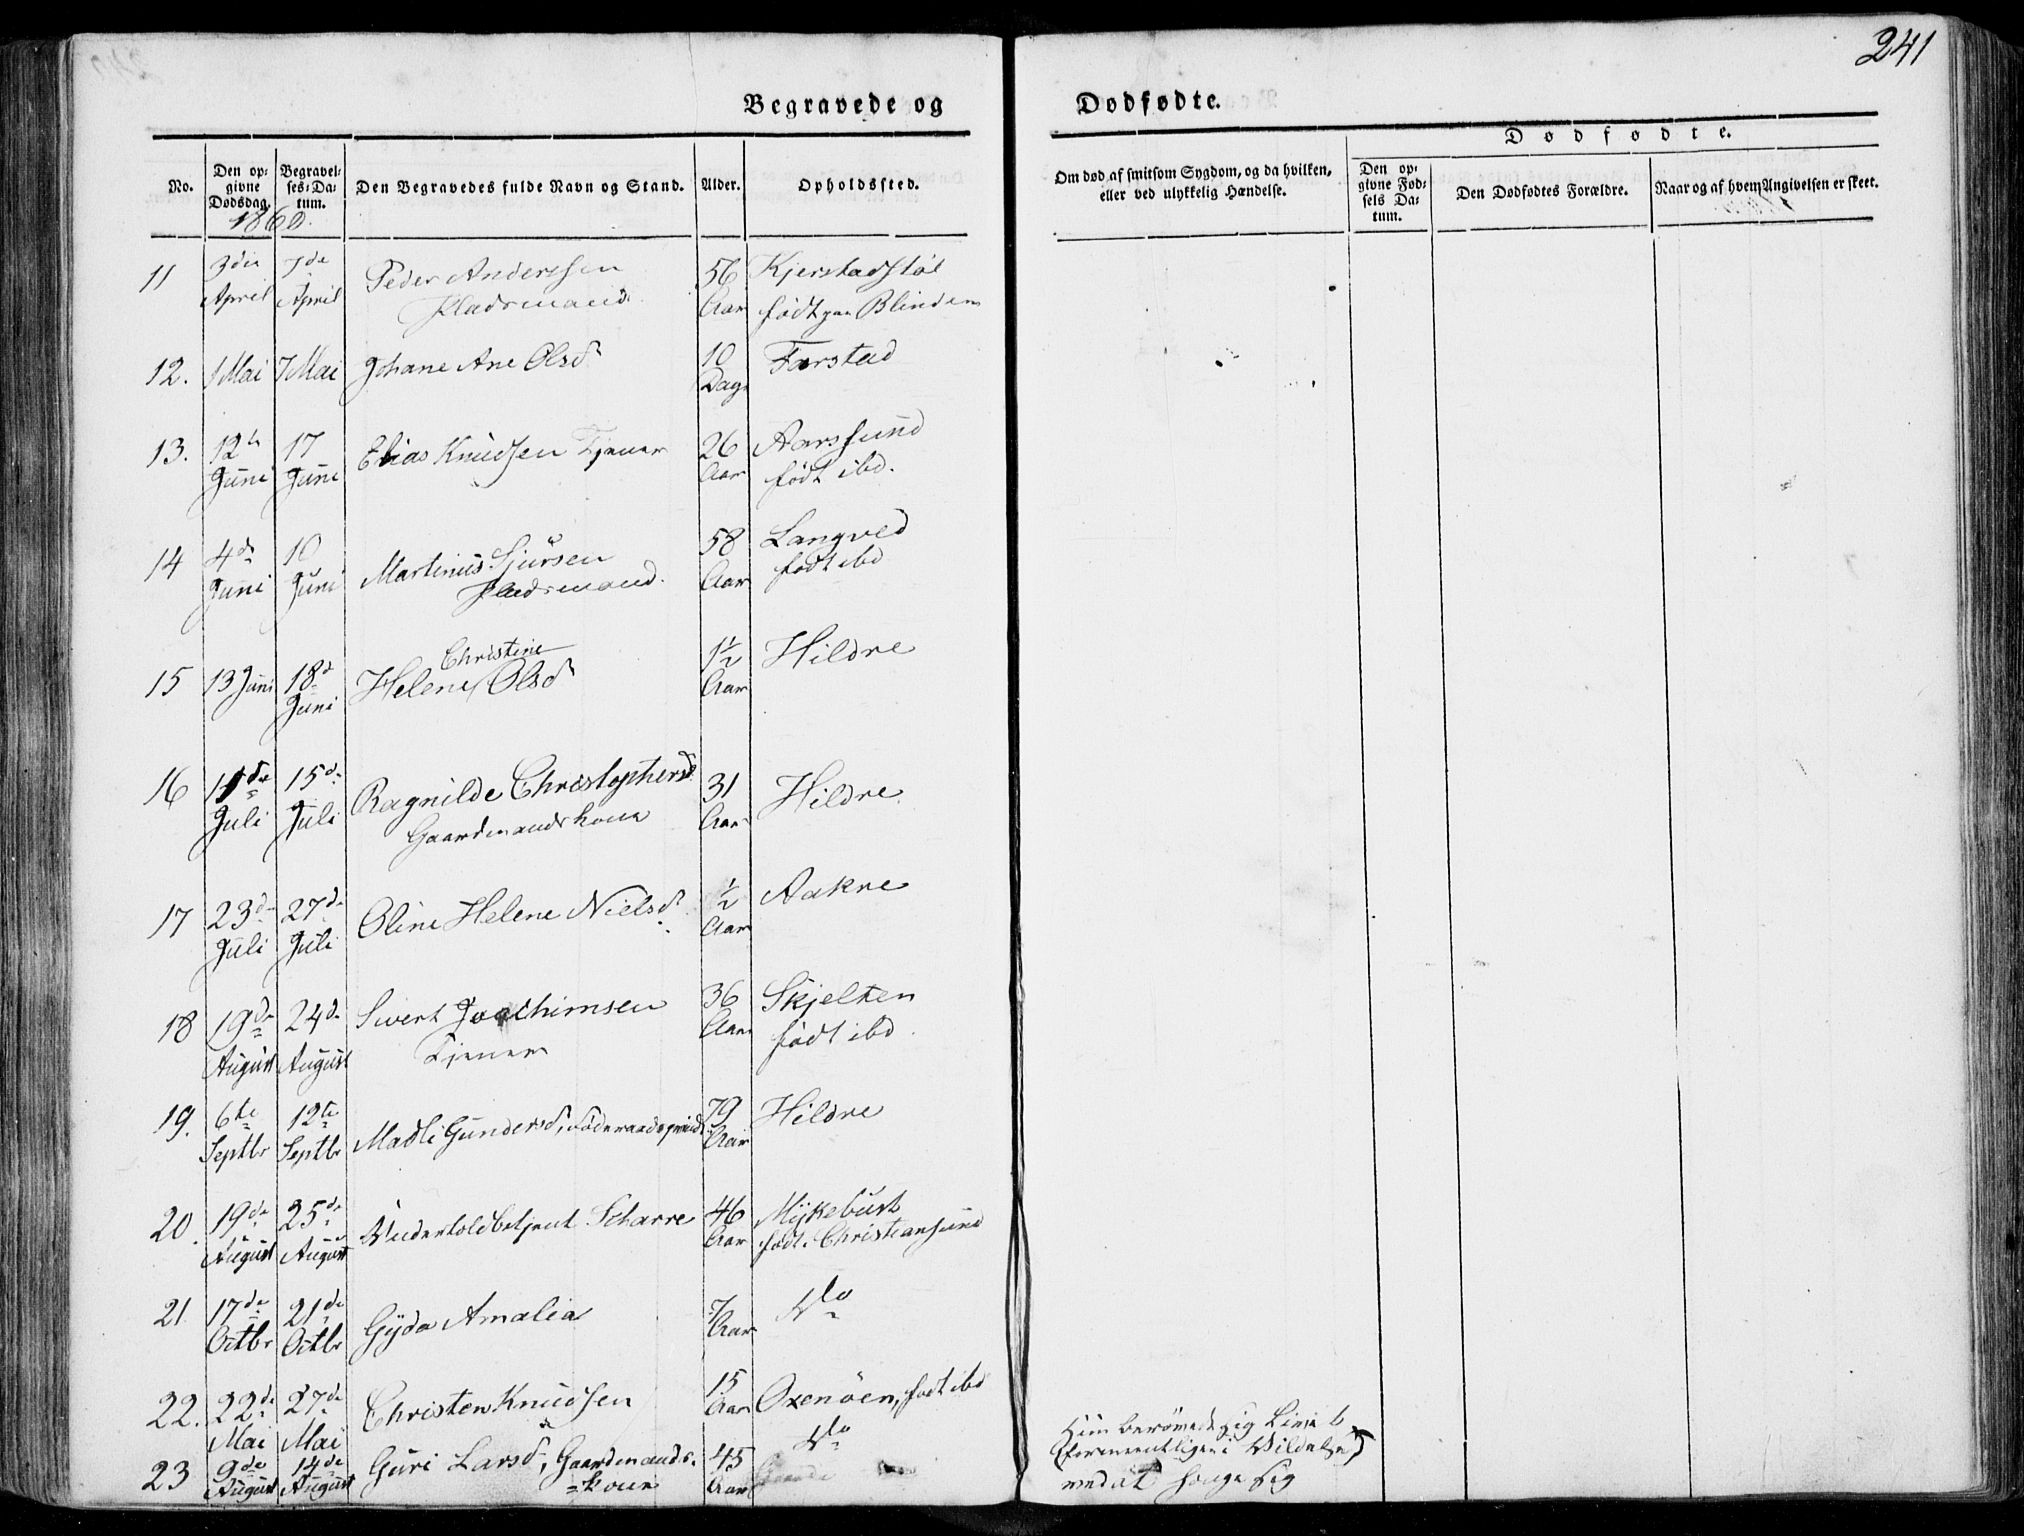 241
Begravede og Dødfødte.
Dødfødte.
No.
Den op-
givne
Dødsdag.
Begravel-
ses-Da-
tum.
Den Begravedes fulde Navn og Stand.
Alder.
Opholdssted.
Om død af smitsom Sygdom, og da hvilken,
eller ved ulykkelig Hændelse.
Den op-
givne Fød-
sels Da-
tum.
Den Dødfødtes Forældre.
Naar og af hvem Angivelsen er skeet.
1860.
11 3die 7de Peder Anderssen 56 Kjerstadstøl
April April Pladsmand Aar født paa Blinden
12. 1 Mai 7 Mai Johane Ane Olsd 10 Farstad
Dage
13. 12te 17 Elias Knudsen Tjener 26 Aarssund
Juni Juni Aar født ibd.
14 4de 10 Martinus Sjursen 58 Langved
Juni Juni Pladsmand. Aar født ibd
Christine
15 13 Juni 18de Helene Olsd 1½ Hildre
Juni Aar
16 de 15de Ragnilde Christophersd 31 Hildre.
Juli Juli Gaardmandskone Aar
17 23de 27de Oline Helene Nielsd. ½ Aakre
Juli Juli Aar
18 19de 24de Sivert Joachimsen 36 Skjelten
August August Tjener Aar født ibd.
19. 6te 12te Madli Gundersd, 79 Hildre
Septbr Septbr Aar
20 19de 25de Undertoldbetjent Scharre 46 Myklebust
August August Aar født. Christiansund
21 17de 21de Gyda Amalia 7 do
Octbr Octbr Aar
22. 22de 27de Christen Knudsen 15 Oxenøen, født ibd
Mai Mai Aar
23 9de 14de Guri Larsd, Gaardmands- 45 do
August August kone Aar
Hun berøvede sig Livet
(formeentligen i Vildelse)
ved at hænge sig